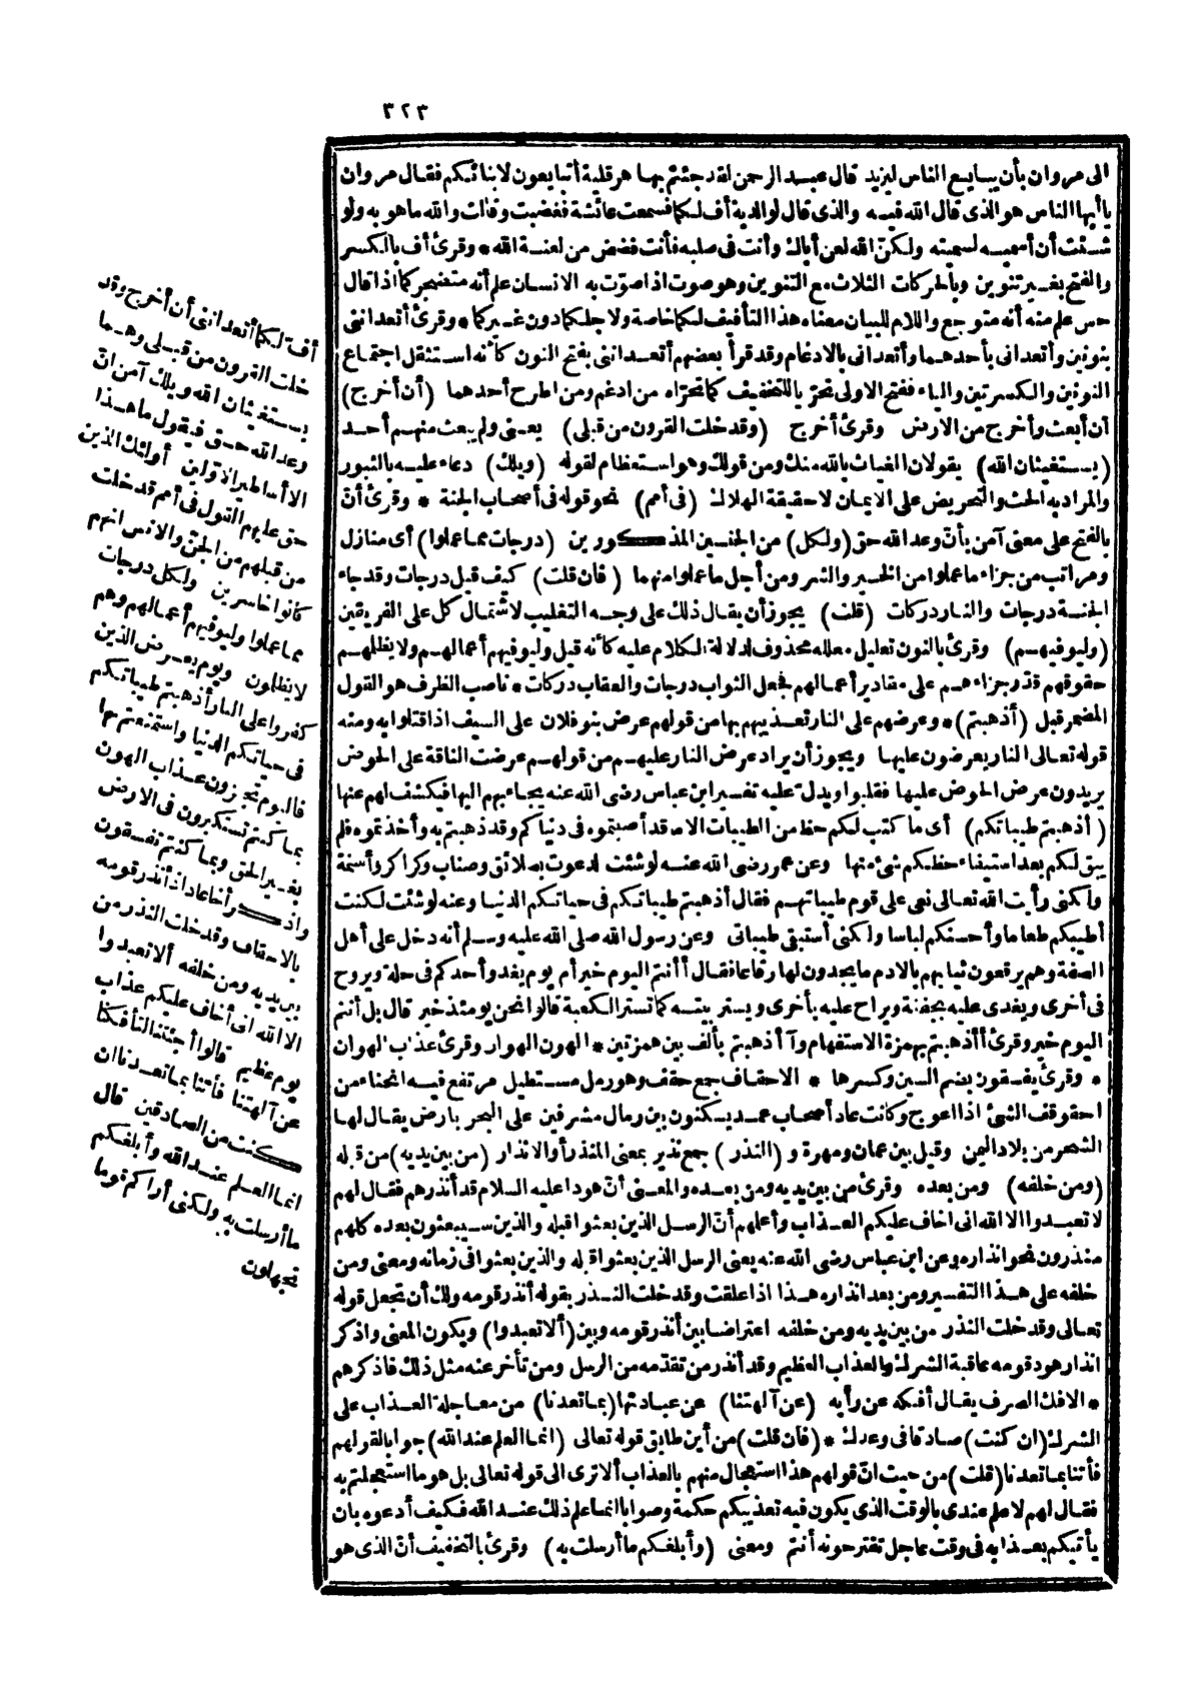 ٣٢٣
الى مروان بأن يبايع الناس ليزيد قال عبد الرحمن لقد جئتم بها هرقلية أتبايعون لابنائكم فقال مروان
ياأيها الناس هو الذى قال الله فيه والذى قال لوالديه أف لكما فسمعت عائشة فغضبت وقالت والله ماهو به ولو
شئت أن أسميه لسميته ولكنّ الله لعن أباك وأنت فى صلبه فأنت فضض من لعنة الله * وقرئ أف بالكسر
والفتح بغير تنوين وبالحركات الثلاث مع التنوين وهو صوت اذا صوّت به الانسان علم أنه متضجر كما اذا قال
حس علم منه أنه متوجع واللام للبيان معناه هذا التأفيف لكما خاصة ولاجلكما دون غيركما * وقرئ أتعداننى
بنونين وأتعدانى بأحدهما وأتعدانى بالادغام وقد قرأ بعضهم أتعداننى بفتح النون كأنه استثقل اجتماع
النونين والكسرتين والياء ففتح الاولى تحرّيا للتخفيف كما تحرّاه من ادغم ومن اطرح أحدهما (أن أخرج)
أن أبعث وأخرج من الارض وقرئ أخرج (وقد خلت القرون من قبلى) يعنى ولم يبعث منهم أحد
(يستغيثان الله) يقولان الغياث بالله منك ومن قولك وهو استعظام لقوله (ويلك) دعاء عليه بالثبور
والمراد به الحث والتحريض على الايمان لا حقيقة الهلاك (فى أمم) نحو قوله فى أصحاب الجنة * وقرئ أنّ
بالفتح على معنى آمن بأنّ وعد الله حق (ولكل) من الجنسين المذكورين (درجات مما عملوا) أى منازل
ومراتب من جزاء ما عملوا من الخير والشر ومن أجل ما عملوا منهما (فان قلت) كيف قيل درجات وقد جاء
الجنة درجات والنار دركات (قلت) يجوز أن يقال ذلك على وجه التغليب لاشتمال كل على الفريقين
(وليوفيهم) وقرئ بالنون تعليل معلله محذوف لدلالة الكلام عليه كأنه قيل وليوفيهم أعمالهم ولا يظلمهم
حقوقهم قدّر جزاءهم على مقادير أعمالهم فجعل الثواب درجات والعقاب دركات * ناصب الظرف هو القول
المضمر قبل (أذهبتم) * وعرضهم على النار تعذيبهم بها من قولهم عرض بنو فلان على السيف اذا قتلوا به ومنه
قوله تعالى النار يعرضون عليها ويجوز أن يراد عرض النار عليهم من قولهم عرضت الناقة على الحوض
يريدون عرض الحوض عليها فقلبوا ويدل عليه تفسير ابن عباس رضى الله عنه يجاء بهم اليها فيكشف لهم عنها
(أذهبتم طيباتكم) أى ما كتب لكم حظ من الطيبات الا ما قد أصبتموه فى دنياكم وقد ذهبتم به وأخذتموه فلم
يبق لكم بعد استيفاء حظكم شئ منها وعن عمر رضى الله عنه لو شئت لدعوت بصلائق وصناب وكراكر وأسنمة
ولكنى رأيت الله تعالى نعى على قوم طيباتهم فقال أذهبتم طيباتكم فى حياتكم الدنيا وعنه لو شئت لكنت
أطيبكم طعاما وأحسنكم لباسا ولكنى أستبقى طيباتى وعن رسول الله صلى الله عليه وسلم أنه دخل على أهل
الصفة وهم يرقعون ثيابهم بالادم ما يجدون لها رقاعا فقال أأنتم اليوم خير أم يوم يغدو أحدكم فى حلة ويروح
فى أخرى ويغدى عليه بجفنة ويراح عليه بأخرى ويستر بيته كما تستر الكعبة قالوا نحن يومئذ خير قال بل أنتم
اليوم خير وقرئ أأذهبتم بهمزة الاستفهام وآأذهبتم بألف بين همزتين * الهون الهوار وقرئ عذاب الهوان
* وقرئ يفسقون بضم السين وكسرها * الاحقاف جمع حقف وهو رمل مستطيل مرتفع فيه انحناء من
احقوقف الشئ اذا اعوج وكانت عاد أصحاب عمد يسكنون بين رمال مشرفين على البحر بارض يقال لها
الشحر من بلاد اليمن وقيل بين عمان ومهرة و (النذر) جمع نذير بمعنى المنذر أو الانذار (من بين يديه) من قبله
(ومن خلفه) ومن بعده وقرئ من بين يديه ومن بعده والمعنى أنّ هودا عليه السلام قد أنذرهم فقال لهم
لا تعبدوا الا الله انى اخاف عليكم العذاب وأعلمهم أنّ الرسل الذين بعثوا قبله والذين سيبعثون بعده كلهم
منذرون نحو انذاره وعن ابن عباس رضى الله عنه يعنى الرسل الذين بعثوا قبله والذين بعثوا فى زمانه ومعنى ومن
خلفه على هذا التفسير ومن بعد انذاره هذا اذا علقت وقد خلت النذر بقوله أنذر قومه ولك أن تجعل قوله
تعالى وقد خلت النذر من بين يديه ومن خلفه اعتراضا بين أنذر قومه وبين (ألا تعبدوا) ويكون المعنى واذكر
انذار هود قومه عاقبة الشرك والعذاب العظيم وقد أنذر من تقدّمه من الرسل ومن تأخر عنه مثل ذلك فاذكرهم
* الافك الصرف يقال أفكه عن رأيه (عن آلهتنا) عن عبادتها (بما تعدنا) من معاجلة العذاب على
الشرك (ان كنت) صادقا فى وعدك * (فان قلت) من أين طابق قوله تعالى (انما العلم عند الله) جوابا لقولهم
فأتنا بما تعدنا (قلت) من حيث انّ قولهم هذا استعجال منهم بالعذاب ألا ترى الى قوله تعالى بل هو ما استعجلتم به
فقال لهم لا علم عندى بالوقت الذى يكون فيه تعذيبكم حكمة وصوابا انما علم ذلك عند الله فكيف أدعوه بان
يأتيكم بعذابه فى وقت عاجل تقترحونه أنتم ومعنى (وأبلغكم ما أرسلت به) وقرئ بالتخفيف أنّ الذى هو
أف لكما أتعداننى أن أخرج وقد
خلت القرون من قبلى وهما
يستغيثان الله ويلك آمن انّ
وعد الله حق فيقول ما هذا
الا أساطير الاوّلين أولئك الذين
حق عليهم القول فى أمم قد خلت
من قبلهم من الجنّ والانس انهم
كانوا خاسرين ولكل درجات
مما عملوا وليوفيهم أعمالهم وهم
لا يظلمون ويوم يعرض الذين
كفروا على النار أذهبتم طيباتكم
فى حياتكم الدنيا واستمتعتم بها
فاليوم تجزون عذاب الهون
بما كنتم تستكبرون فى الارض
بغير الحق وبما كنتم تفسقون
واذكر أخا عاد اذ أنذر قومه
بالاحقاف وقد خلت النذر من
بين يديه ومن خلفه ألا تعبدوا
الا الله انى أخاف عليكم عذاب
يوم عظيم قالوا أجئتنا لتأفكنا
عن آلهتنا فأتنا بما تعدنا ان
كنت من الصادقين قال
انما العلم عند الله وأبلغكم
ما أرسلت به ولكنى أراكم قوما
تجهلون